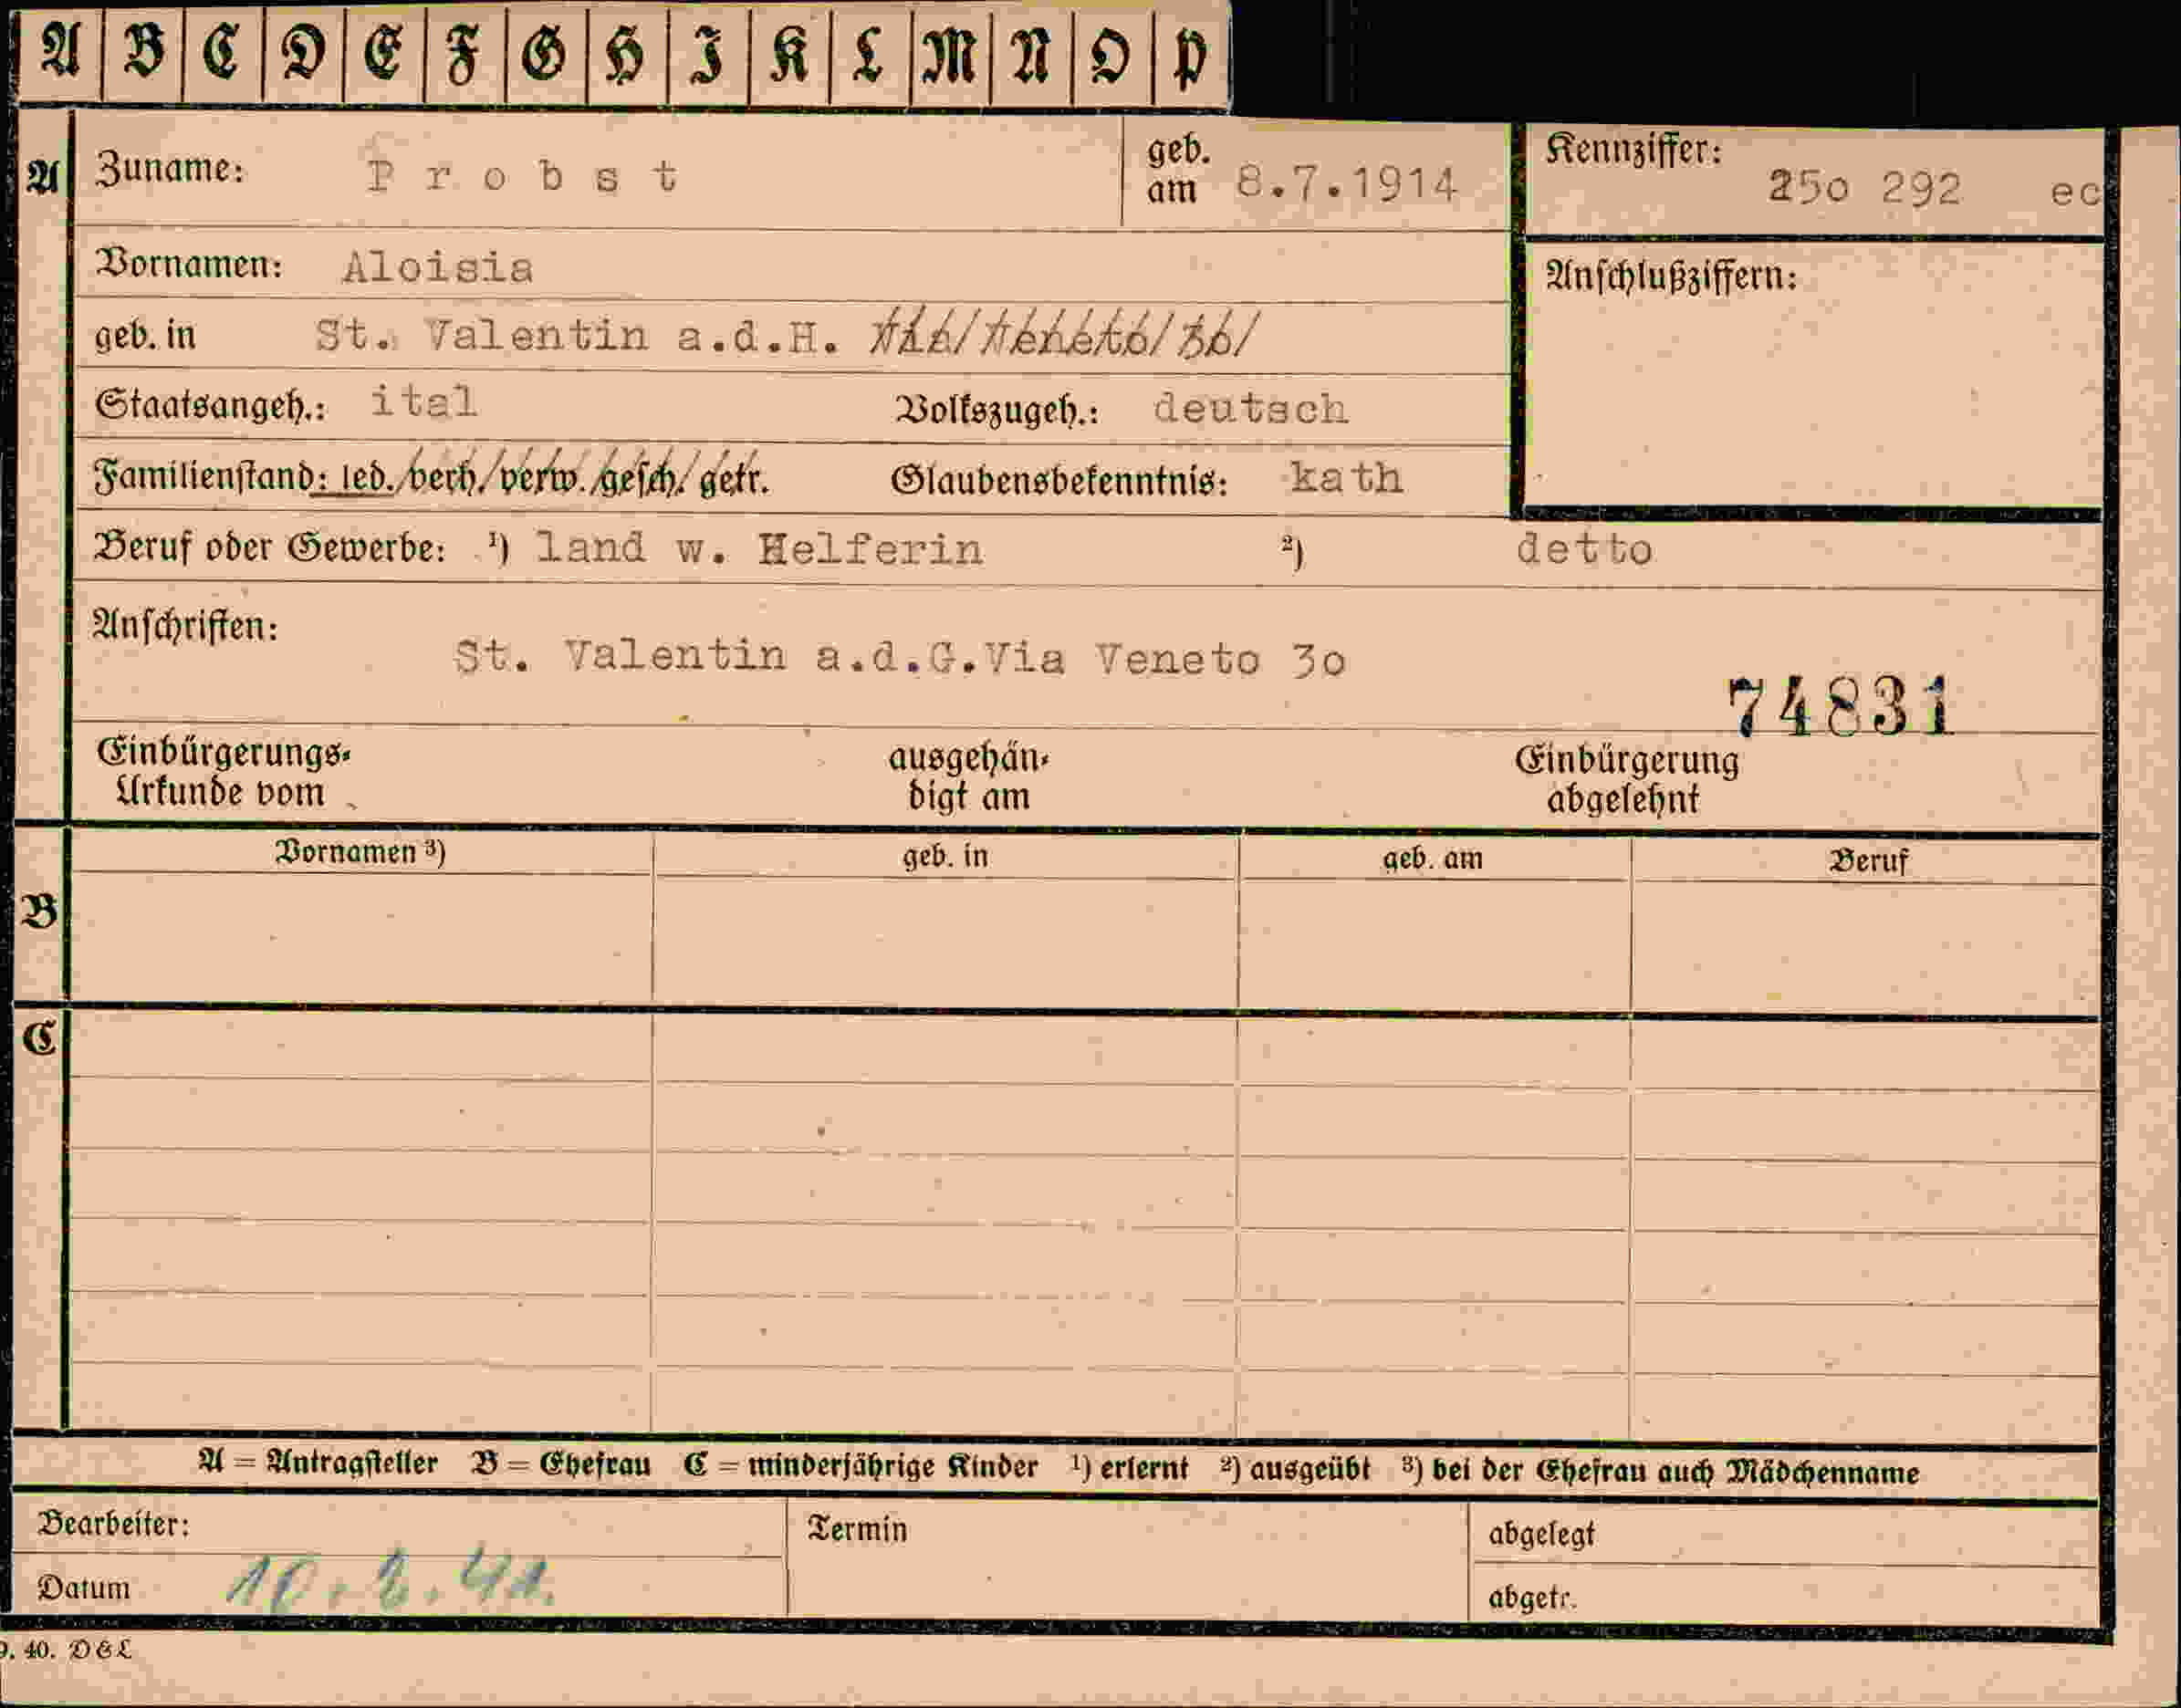 A B C D E F G H I K L M N O P
A Zuname: Probst geb. am 8.7.1914 Kennziffer: 25o 292 ec
Vornamen: Aloisia Anschlußziffern:
geb. in St. Valentin a.d.H.
Staatsangeh.: ital Volkszugeh.: deutsch
Familienstand: led./verh./verw./gesch./getr. Glaubensbekenntnis: kath
Beruf oder Gewerbe: ¹) land w. Helferin ²) detto
Anschriften:
St. Valentin a.d.G.Via Veneto 3o
74831
Einbürgerungs- Urkunde vom ausgehän- digt am Einbürgerung abgelehnt
Vornamen ³) geb. in geb. am Beruf
B
C
A = Antragsteller B = Ehefrau C = minderjährige Kinder ¹) erlernt ²) ausgeübt ³) bei der Ehefrau auch Mädchenname
Bearbeiter: Termin abgelegt
Datum 10. 2. 41. abgetr.
9. 40. DEL